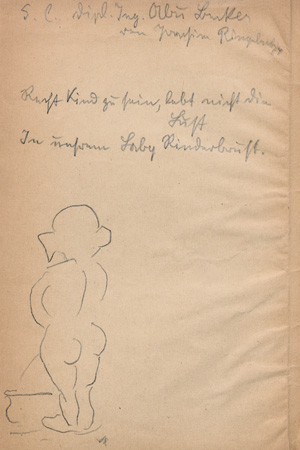 S. l. Dipl. Ing. Abu Becker
von Joachim Ringelnatz
Recht Kind zu sein, lebt nicht die
Lust
In unsrem Baby Kinderbrust.